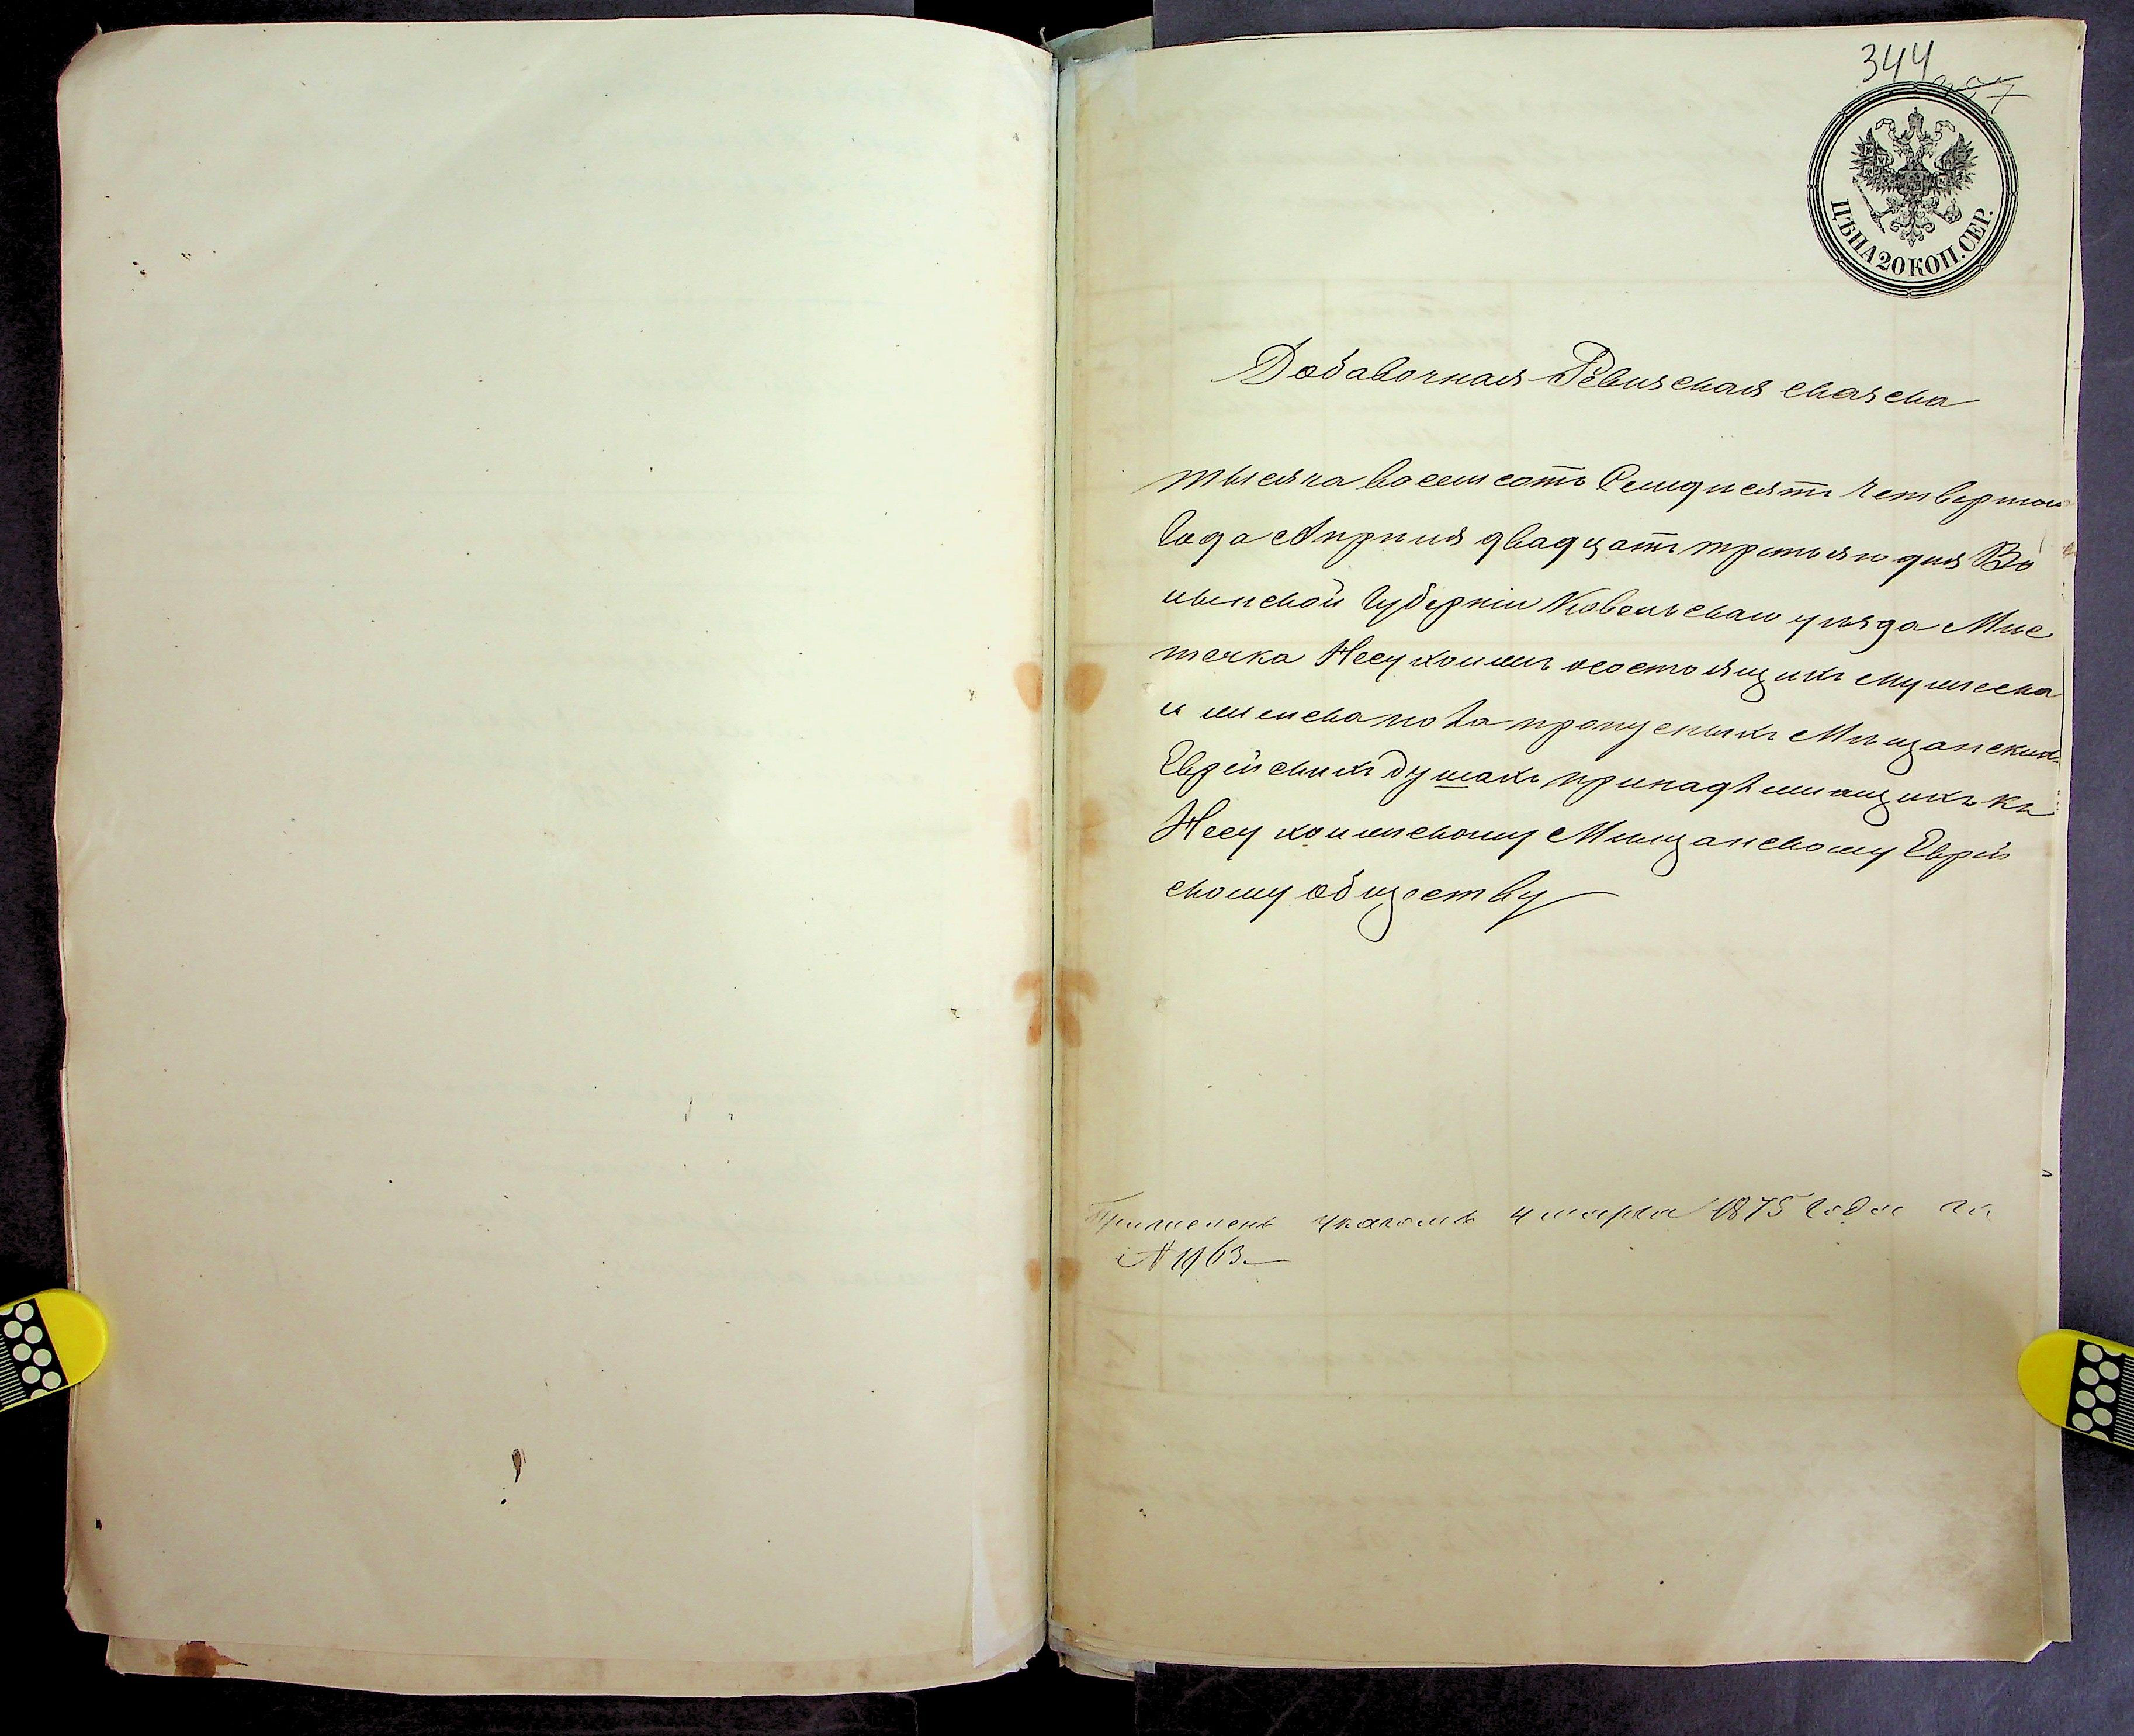 344
ЦѢНА 20 КОП. СЕР.
Добавочная Ревизская сказка
тысяча восемсотъ Семидисятъ четвертою
Года Априля двадцатъ третьяго дня Во
лынской Губерніи Ковельскаго уѣзда Мис
течка Несухоижъ осостоящихъ мужеска
и женска пола пропусныхъ Мѣщанских
Еврейскихъ душахъ принадлежащихъ къ
Несухоижскому Мѣщанскому Еврей
скому обществу
Причисленъ указомъ 4 марта 1875 Года за
№ 1163